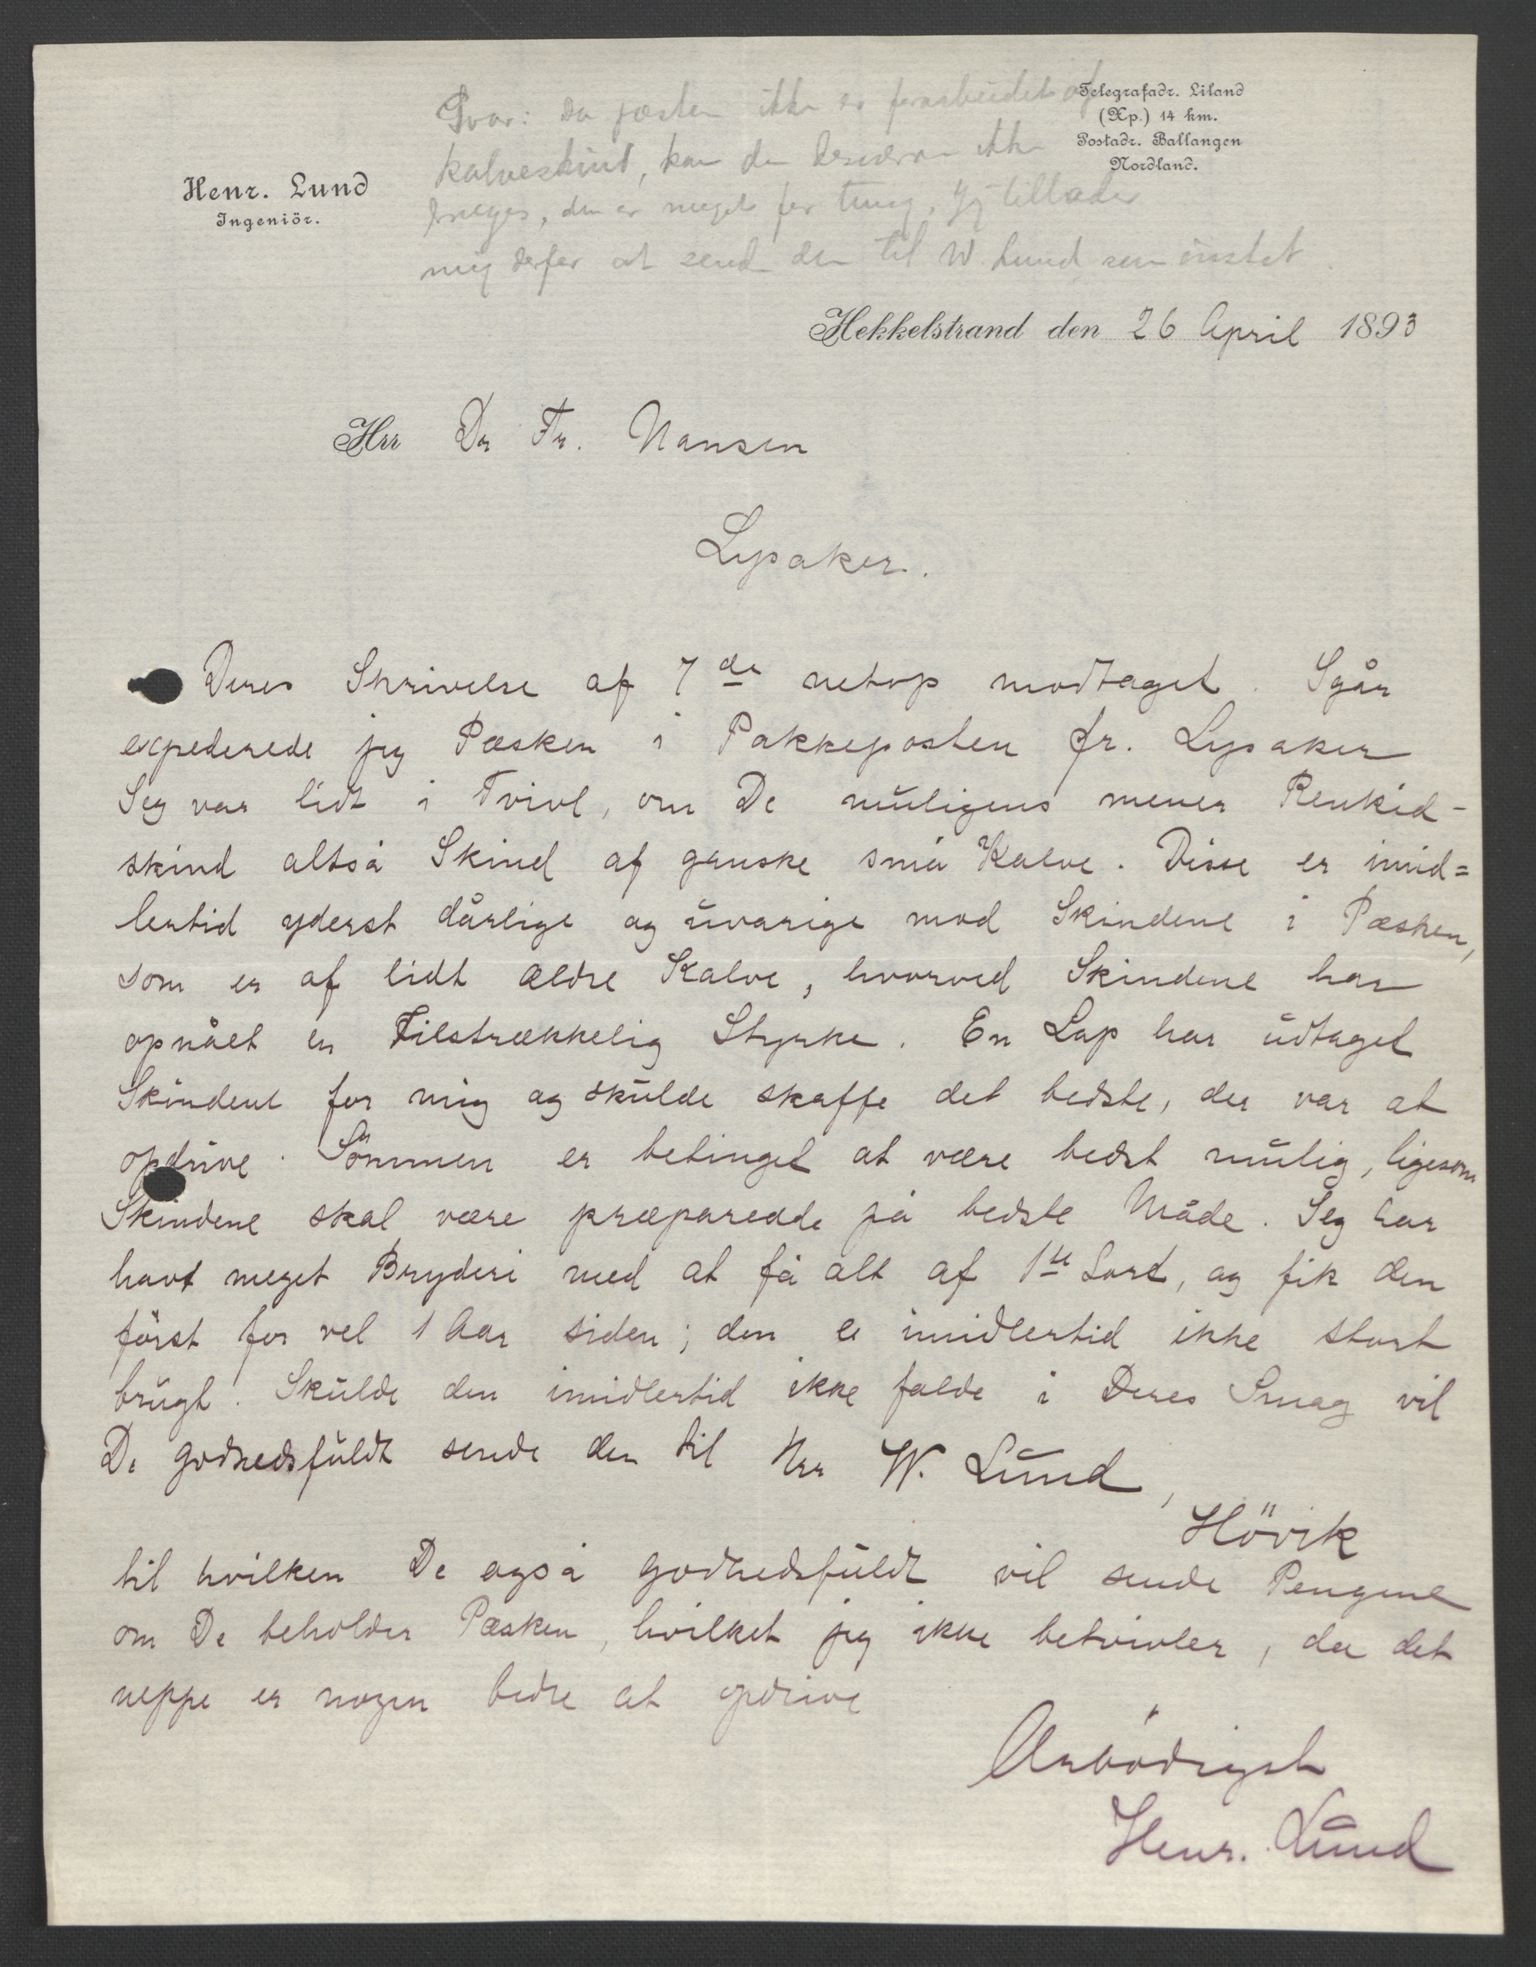 Svar: Da pæsken ikke er forarbeidet af
kalveskind, kan den desværre ikke
bruges, den er meget for tung. Jeg tillader
mig derfor at sende den til W. Lund som ønsket.
Telegrafadr. Liland
(Xp.) 14 km.
Postadr. Ballangen
Nordland.
Henr. Lund
Ingeniör.
Hekkelstrand den 26 April 1893
Hrr Dr Fr. Nansen
Lysaker.
Deres Skrivelse af 7de netop modtaget. Igår
expederede jeg Pæsken i Pakkeposten fr. Lysaker
Jeg var lidt i Tvivl, om De muligens mener Renkid-
skind altså Skind af ganske små Kalve. Disse er imid=
lertid yderst dårlige og uvarige mod Skindene i Pæsken,
som er af lidt ældre Kalve, hvorved Skindene har
opnået en Tilstrækkelig Styrke. En Lap har udtaget
Skindene for mig og skulde skaffe det bedste, der var at
opdrive. Sömmen er betinget at være bedst mulig, ligesom
Skindene skal være præparedde på bedste Måde. Jeg har
havt meget Bryderi med at få alt af 1ste Sort, og fik den
först for vel 1 Aar siden; den er imidlertid ikke stort
brugt. Skulde den imidlertid ikke falde i Deres Smag vil
De godhedsfuldt sende den til Hrr W. Lund,
Hövik
til hvilken De også godhedsfuldt vil sende Pengene
om De beholder Pæsken, hvilket jeg ikke betvivler, da det
neppe er nogen bedre at opdrive
Ærbödigst
Henr. Lund